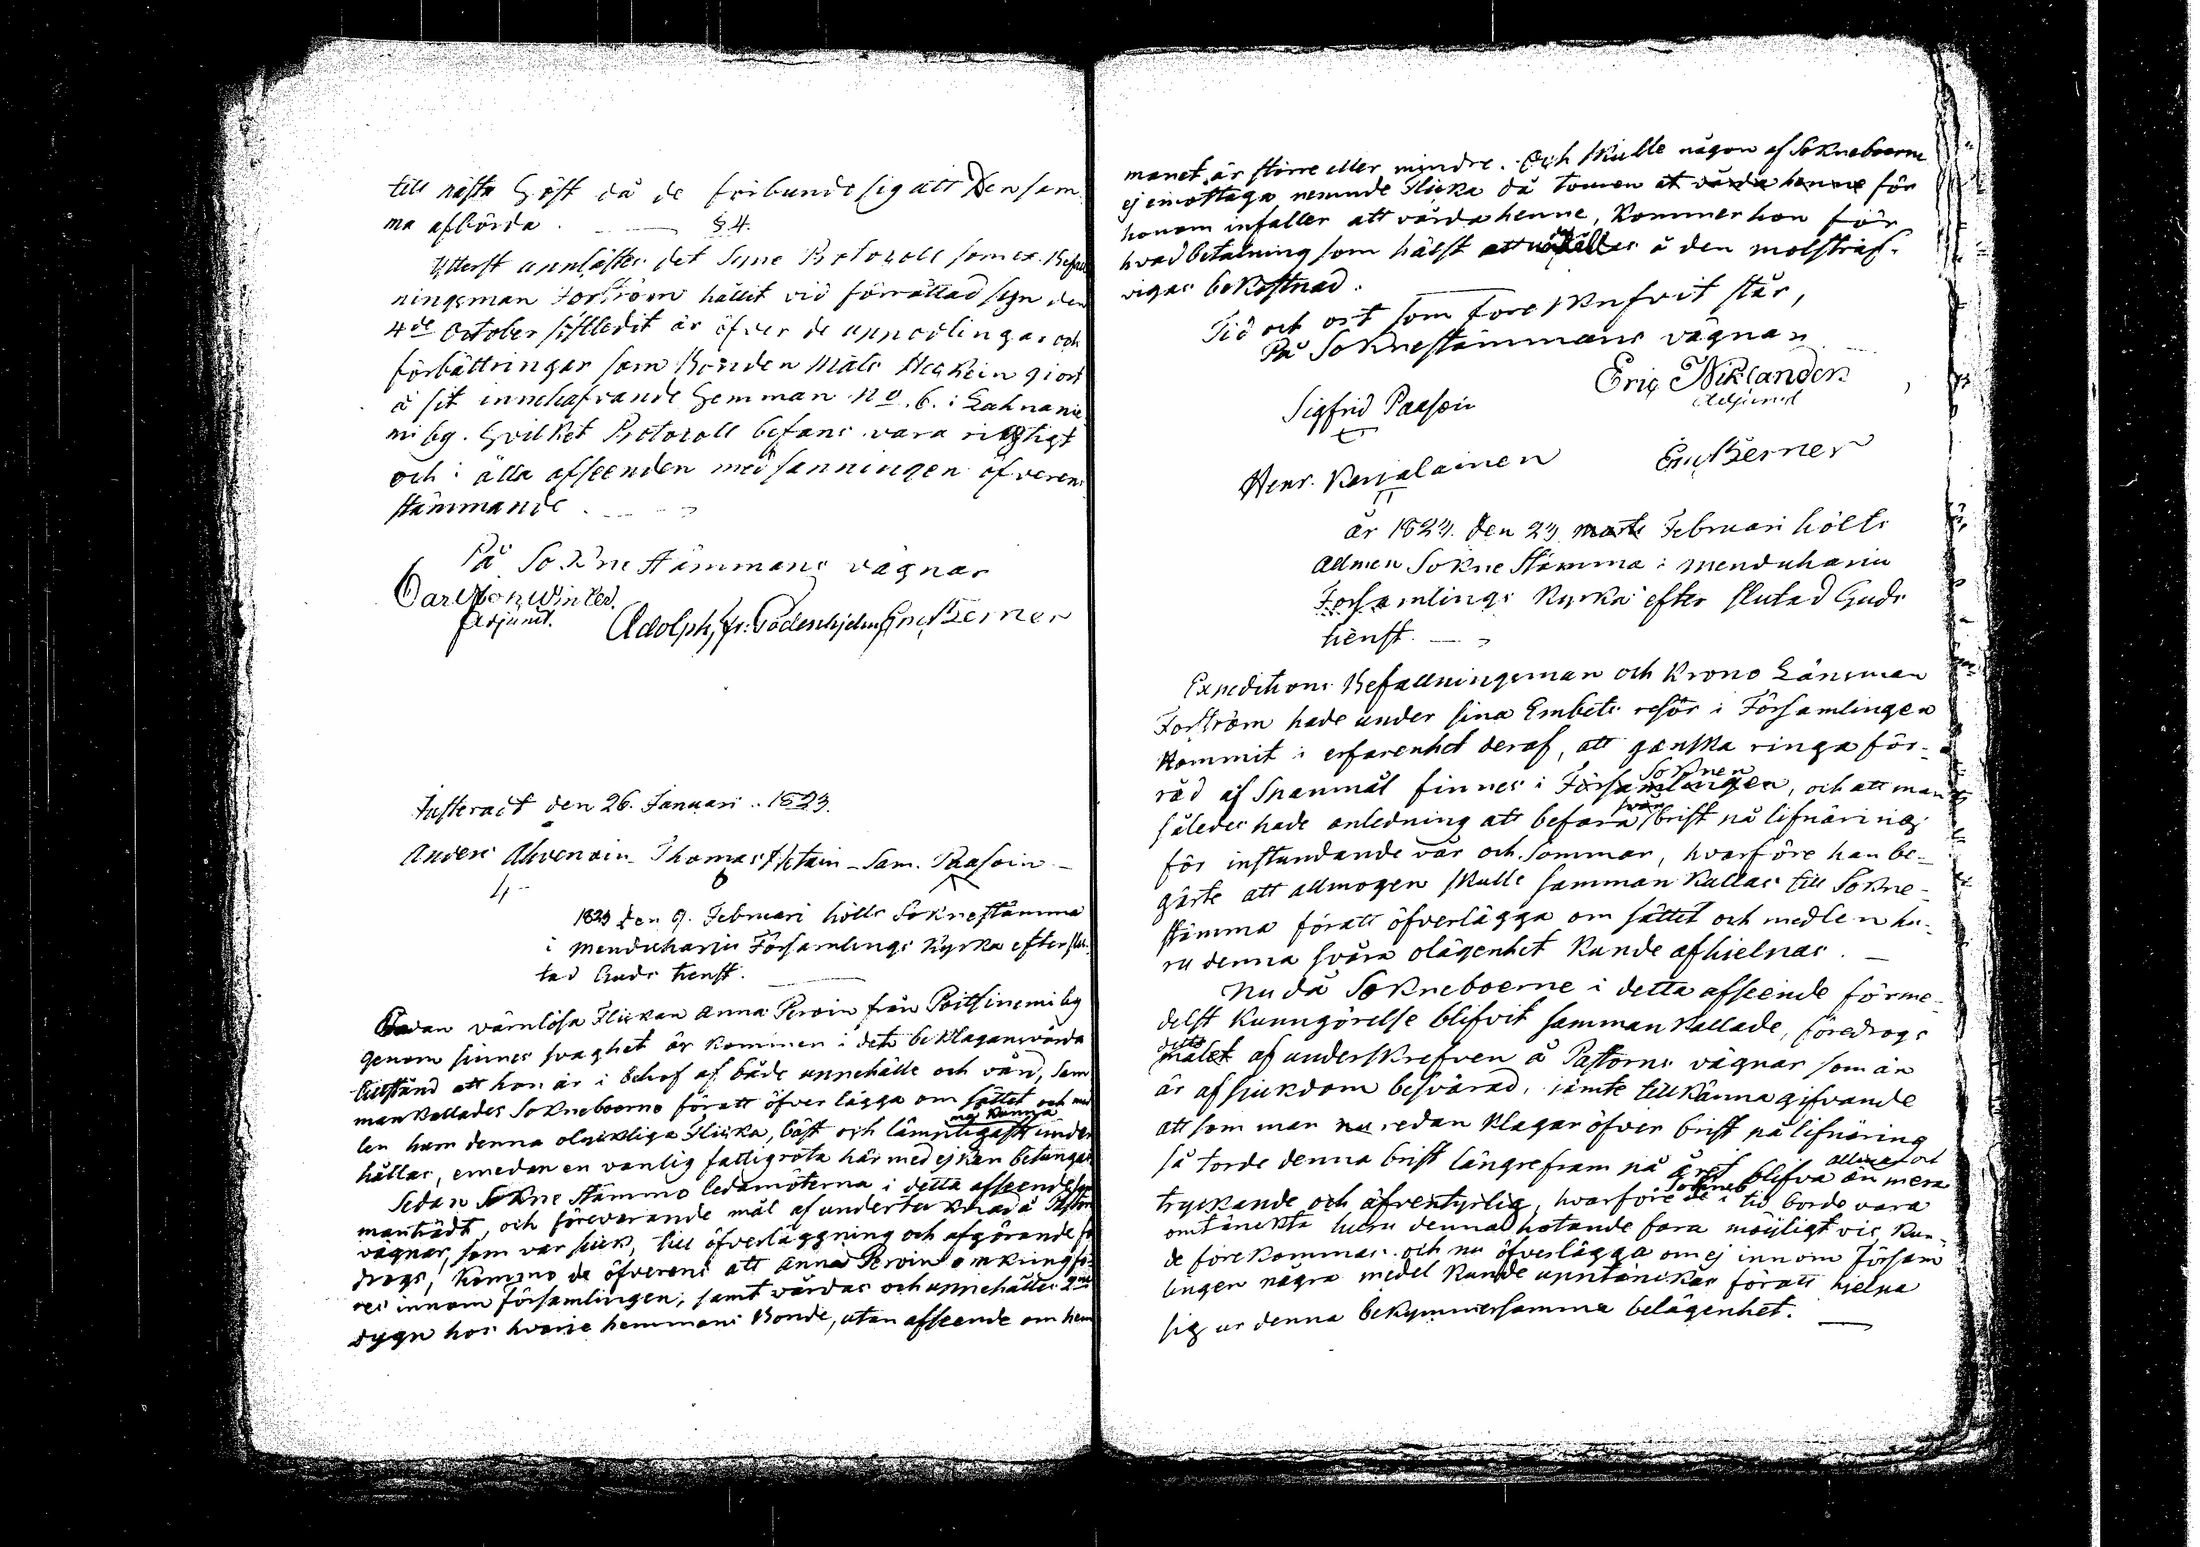 till nästa Höst då de förbundo sig att den sam
ma afbörda. § 4.
Ytterst upplästes det Syne Protocoll som ex. Befall
ningsman Forström hållit vid förrättad syn den
4de October sistledit år öfver de uppodlingar och
förbättringar som Bonden Mats Heskein giort
å sit innehafvande Hemman No. 6. i Lahnanie
mi by. Hvilket Protocoll befans vara ricktigt
och i alla afseenden med sanningen öfverens
stämmande
På Sokne Stämmans vägnar
Carl von Winter
Adjunct. Adolph Fr. Tödenhjelm Eric Berner
Justeradt den 26. Januari 1823.
Anders Ahvenain Thomas Sam. Paasoin
1823 den 9. Februari hölts Soknestämma
i Mendukariu Församlings Kyrka efter slu-
tad Guds tienst.
Sedan värnlösa Flickan Anna Pervoin från Poitsinemi by
genom sinnes svaghet är kommen i det beklagansvärda
tillstånd att hon är i behof af både uppehälle och vård, sam
mankallades Sokneboerne för att öfverlägga om sättet och med
len huru denna olyckliga Flicka, bäst och lämpligast må kunna under
hållas, emedan en vanlig fattigrota här med ej kan betungas
Sedan Sokne Stämmo ledamöterna i detta afseende sam
manträdt, och förevarande mål af undertecknad å Pastors
vägnar, som var siuk, till öfverläggning och afgörande fö
drogs, kommo de öfverens att Anna Pervoin omkring fö-
res innom församlingen, samt vårdas och uppehålles 2ne
dygn hos hvarje hemmans Bonde, utan afseende om hem
manet är större eller mindre. Och skulle någon af Sokneboerne
ej emottaga nemnde Flicka då touren at vårda henne för
honom infaller att vårda henne, kommer hon för
hvad betalning som hälst å den motsträf-
viges bekostnad.
Tid och ort som fore skrifvit står,
På Soknestämmans vägnar
Eric Niklander
Adjunct
Sigfrid Paasoin
Henr. Karjalainen Eric Berner
år 1823. den 23. Februari hölts
allmen Sokne Stämma i Mendukariu
Församlings Kyrka efter slutad Guds
tienst.
Expeditions Befallningsman och Krono Länsman
Forström hade under sina Embets resor i Församlingen
kommit i erfarenhet deraf, att ganska ringa för-
råd af Spanmål finnes i Församlingen Soknen, och att man
således hade anledning att befara svår brist på lifnäring
för instundande vår och sommar, hvarföre han be-
gärte att allmogen skulle samman kallas till Sokne-
stämma för att öfverlägga om sättet och medlen hu-
ru denna svåra olägenhet kunde afhielpas.
Nu då Sokneboerne i detta afseende förme-
delst kunngörelse blifvit samman kallade, föredrogs
detta målet af underskrefven å Pastorns vägnar som är
är af siukdom besvärad, jämte tillkänna gifvande
att som man nu redan klagar öfver brist på lifnäring
så torde denna brist längre fram på året blifva än mera allmen och
tryckande och äfventyrlig, hvarföre de Sokneb i tid borde vara
omtänckta huru denna hotande fara möjligt vis kun-
de förekommas och nu öfverlägga om ej innom Försam
lingen några medel kunde upptänckas för att hielpa
sig ur denna bekymmersamma belägenhet.